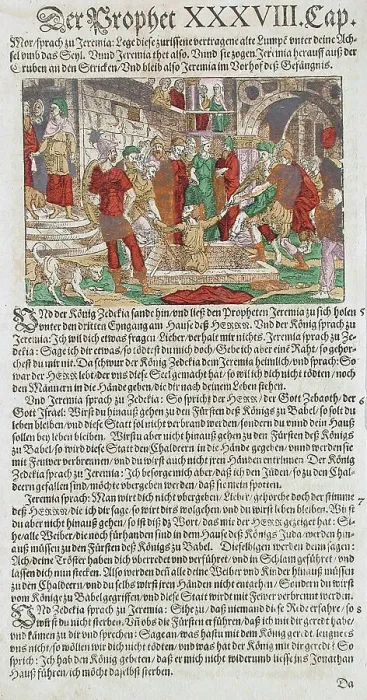 Der Prophet XXXVIII. Cap.
Mor/sprach zu Jeremia: Lege diese zurissene vertragene alte Lumpẽ vnter deine Ach-
sel vmb das Seyl. Vnnd Jeremia thet also. Vnnd sie zogen Jeremia herauff auß der
Gruben an den Stricken/Vnd bleib also Jeremia im Vorhof deß Gefängnis.
VNd der König Zedekia sandte hin/vnd ließ den Propheten Jeremia zu sich holen
vnter den dritten Eyngang am Hause deß HERRN. Vnd der König sprach zu
Jeremia: Ich wil dich etwas fragen/Lieber/verhalt mir nichts. Jeremia sprach zu Ze-
dekia: Sage ich dir etwas/so tödtest du mich doch/Gebe ich aber eine Raht/so gehor-
chest du mir nit. Da schwur der König Zedekia dem Jeremia heimlich/vnd sprach: So
war der HERR lebt/der vns diese Seel gemacht hat/so wil ich dich nicht tödten/noch
den Männern in die Hände geben/die dir nach deinem Leben stehen.
Vnd Jeremia sprach zu Zedekia: So spricht der HERR/der Gott Zebaoth/der 6
Gott Israel: Wirst du hinauß gehen zu den Fürsten deß Königs zu Babel/so solt du
leben bleiben/vnd diese Statt sol nicht verbrand werden/sondern du vnnd dein Hauß
sollen bey leben bleiben. Wirstu aber nicht hinauß gehen zu den Fürsten deß Königs
zu Babel/so wird diese Statt den Chaldeern in die Hände gegeben/vnnd werden sie
mit Feuwer verbrennen/vnd du wirst auch nicht jren Händen entrinnen. Der König
Zedekia sprach zu Jeremia: Ich besorge mich aber/daß ich den Jüden/so zu den Chal-
deern gefallen sind/möchte vbergeben werden/daß sie mein spotten.
Jeremia sprach: Man wirt dich nicht vbergeben/Lieber/gehorche doch der stimme 7
deß HERRN/die ich dir sage/so wirt dirs wolgehen/vnd du wirst leben bleiben. Wirst
du aber nicht hinauß gehen/so ist diß dz Wort/das mir der HERR gezeiget hat: Si-
he/alle Weiber/die noch fürhanden sind in dem Hause deß Königs Juda/werden hin-
auß müssen zu den Fürsten deß Königs zu Babel. Dieselbigen werden denn sagen:
Ach/deine Tröster haben dich vberredet vnd verführet/vnd in Schlam geführet/vnd
lassen dich nun stecken. Also werden deñ alle deine Weiber vnd Kinder hinauß müssen
zu den Chaldeern/vnd du selbs wirst jren Händen nicht entgehen/Sondern du wirst
vom Könige zu Babel gegriffen/vnd diese Statt wirdt mit Fewer verbrennt werden.
VNd Zedekia sprach zu Jeremia: Sihe zu/daß niemand diese Rede erfahre/so 8
wirst du nicht sterben. Vñ obs die Fürsten erführen/daß ich mit dir geredt habe/
vnd kämen zu dir vnd sprechen: Sage an/was hastu mit dem König geredt/leugne es
vns nicht/so wöllen wir dich nicht tödten/vnd was hat der König mit dir geredt? So
sprich: Ich hab den König gebeten/daß er mich nicht widerumb liesse ins Jonathan
Hauß führen/ich möcht daselbst sterben.
Da